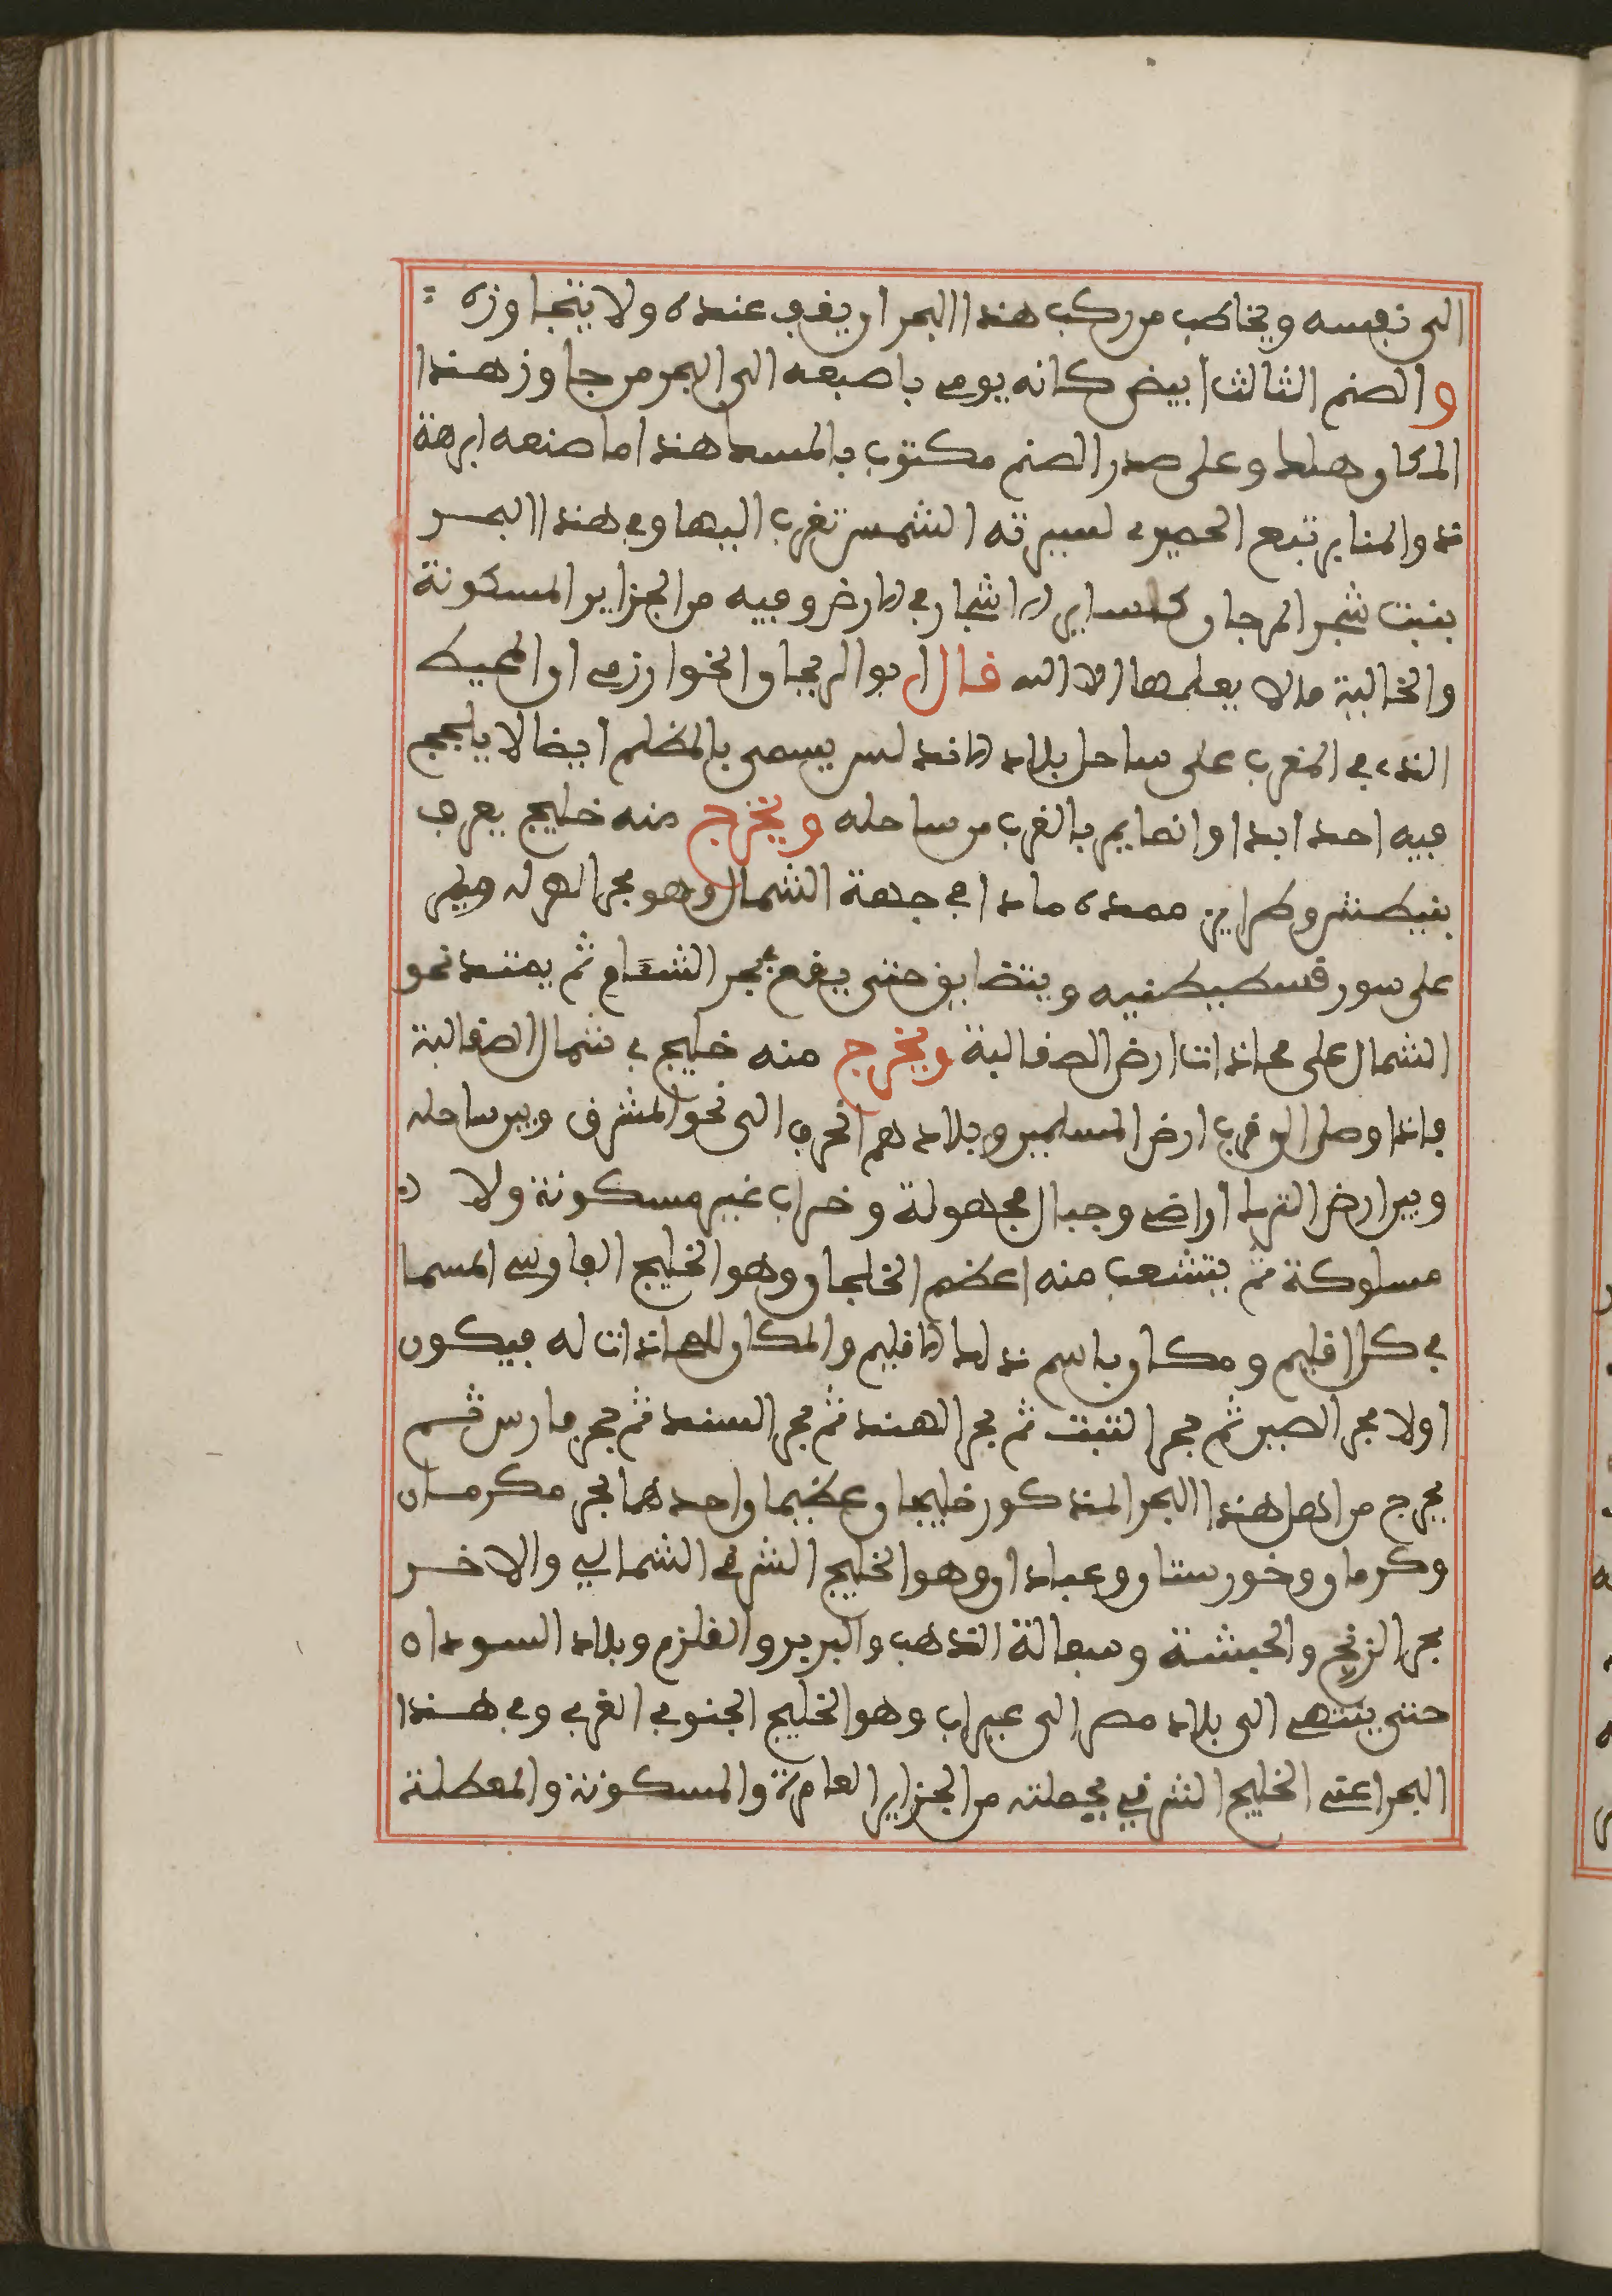 الى نفسه ويخاطب من ركب هذا البحر ان يقف عنده ولا يتجاوزه
والصنم الثالث ابيض كانه يومي باصبعه الى البحر من جاوز هذا
المكان هلك وعلى صدر الصنم مكتوب بالمسند هذا ما صنعه ابرهة
ذو المنار تبع الحميري لسيرته الشمس تغرب اليها وفي هذا البحر
ينبت شجر المرجان كساير الاشجار في الارض وفيه من الجزاير المسكونة
والخالية ما لا يعلمها الا الله قال ابو الريحان الخوارزمي ان المحيط
الذي في المغرب على ساحل بلاد الاندلس يسمى بالمظلم ايضا لا يلجج
فيه احد ابدا وانما يمر بالغرب من ساحله ويخرج منه خليج يعرف
بنيطش وطرابزن ممده مادا في جهة الشمال وهو بحر
على سور قسطيطنيه ويتضايق حتى يقع بحر الشام ثم يمتد نحو
الشمال على محاذات ارض الصقالبة ويخرج منه خليج في شمال الصقالبة
فاذا وصل الى قرب ارض المسلمين وبلادهم انحرف الى نحو المشرق وبين ساحله
وبين ارض الترك اراضي وجبال مجهولة وخراب غير مسكونة ولا
مسلوكة ثم يتشعب منه اعظم الخلجان وهو الخليج الفارسي المسما
في كل اقليم ومكان باسم ذلك الاقليم والمكان المحاذات له فيكون
اولا بحر الصين ثم بحر التبت ثم بحر الهند ثم بحر السند ثم بحر فارس ثم
يخرج من اصل هذا البحر المذكور خليجان عظيمان احدهما بحر مكرمان
وكرمان وخورستان وعبادان وهو الخليج الشرقي الشمالي والاخر
بحر الزنج والحبشة وسفالة الذهب والبربر والقلزم وبلاد السودان
حتى ينتهي الى بلاد مصر الى عيراب وهو الخليج الجنوبي الغربي وفي هذا
البحر اعني الخليج الشرقي بجملته من الجزاير العامرة والمسكونة والمعطلة